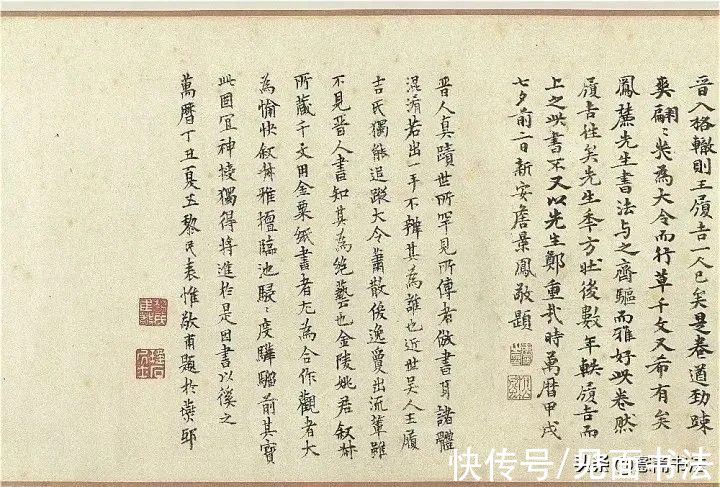 晋入格轍則王履吉一人已矣是卷遒劲踈
爽翩〻為大令而行草千文又希有矣
鳳麓先生書法与之齊驅而雅好此卷然
履吉往矣先生季方壮後數年軼履吉而
上之此書不又以先生鄭重哉時萬曆甲戌
七夕前二日新安詹景鳳敬題
晋人真蹟世所罕見所傳者倣書耳諸體
混淆若出一手不辨其為誰也近世吳人王履
吉氏獨能追蹤大令蕭散俊逸夐出流輩雖
不見晋人書知其為絕藝也金陵姚君叙卿
所藏千文用金粟紙書者尤為合作觀者大
為愉快叙卿雅擅臨池駸〻度驊騮前其寳
此固宜神獨得將進於是因書以俟之
萬曆丁丑夏五黎民表惟敬甫題於燕邸
快传号/见面书法